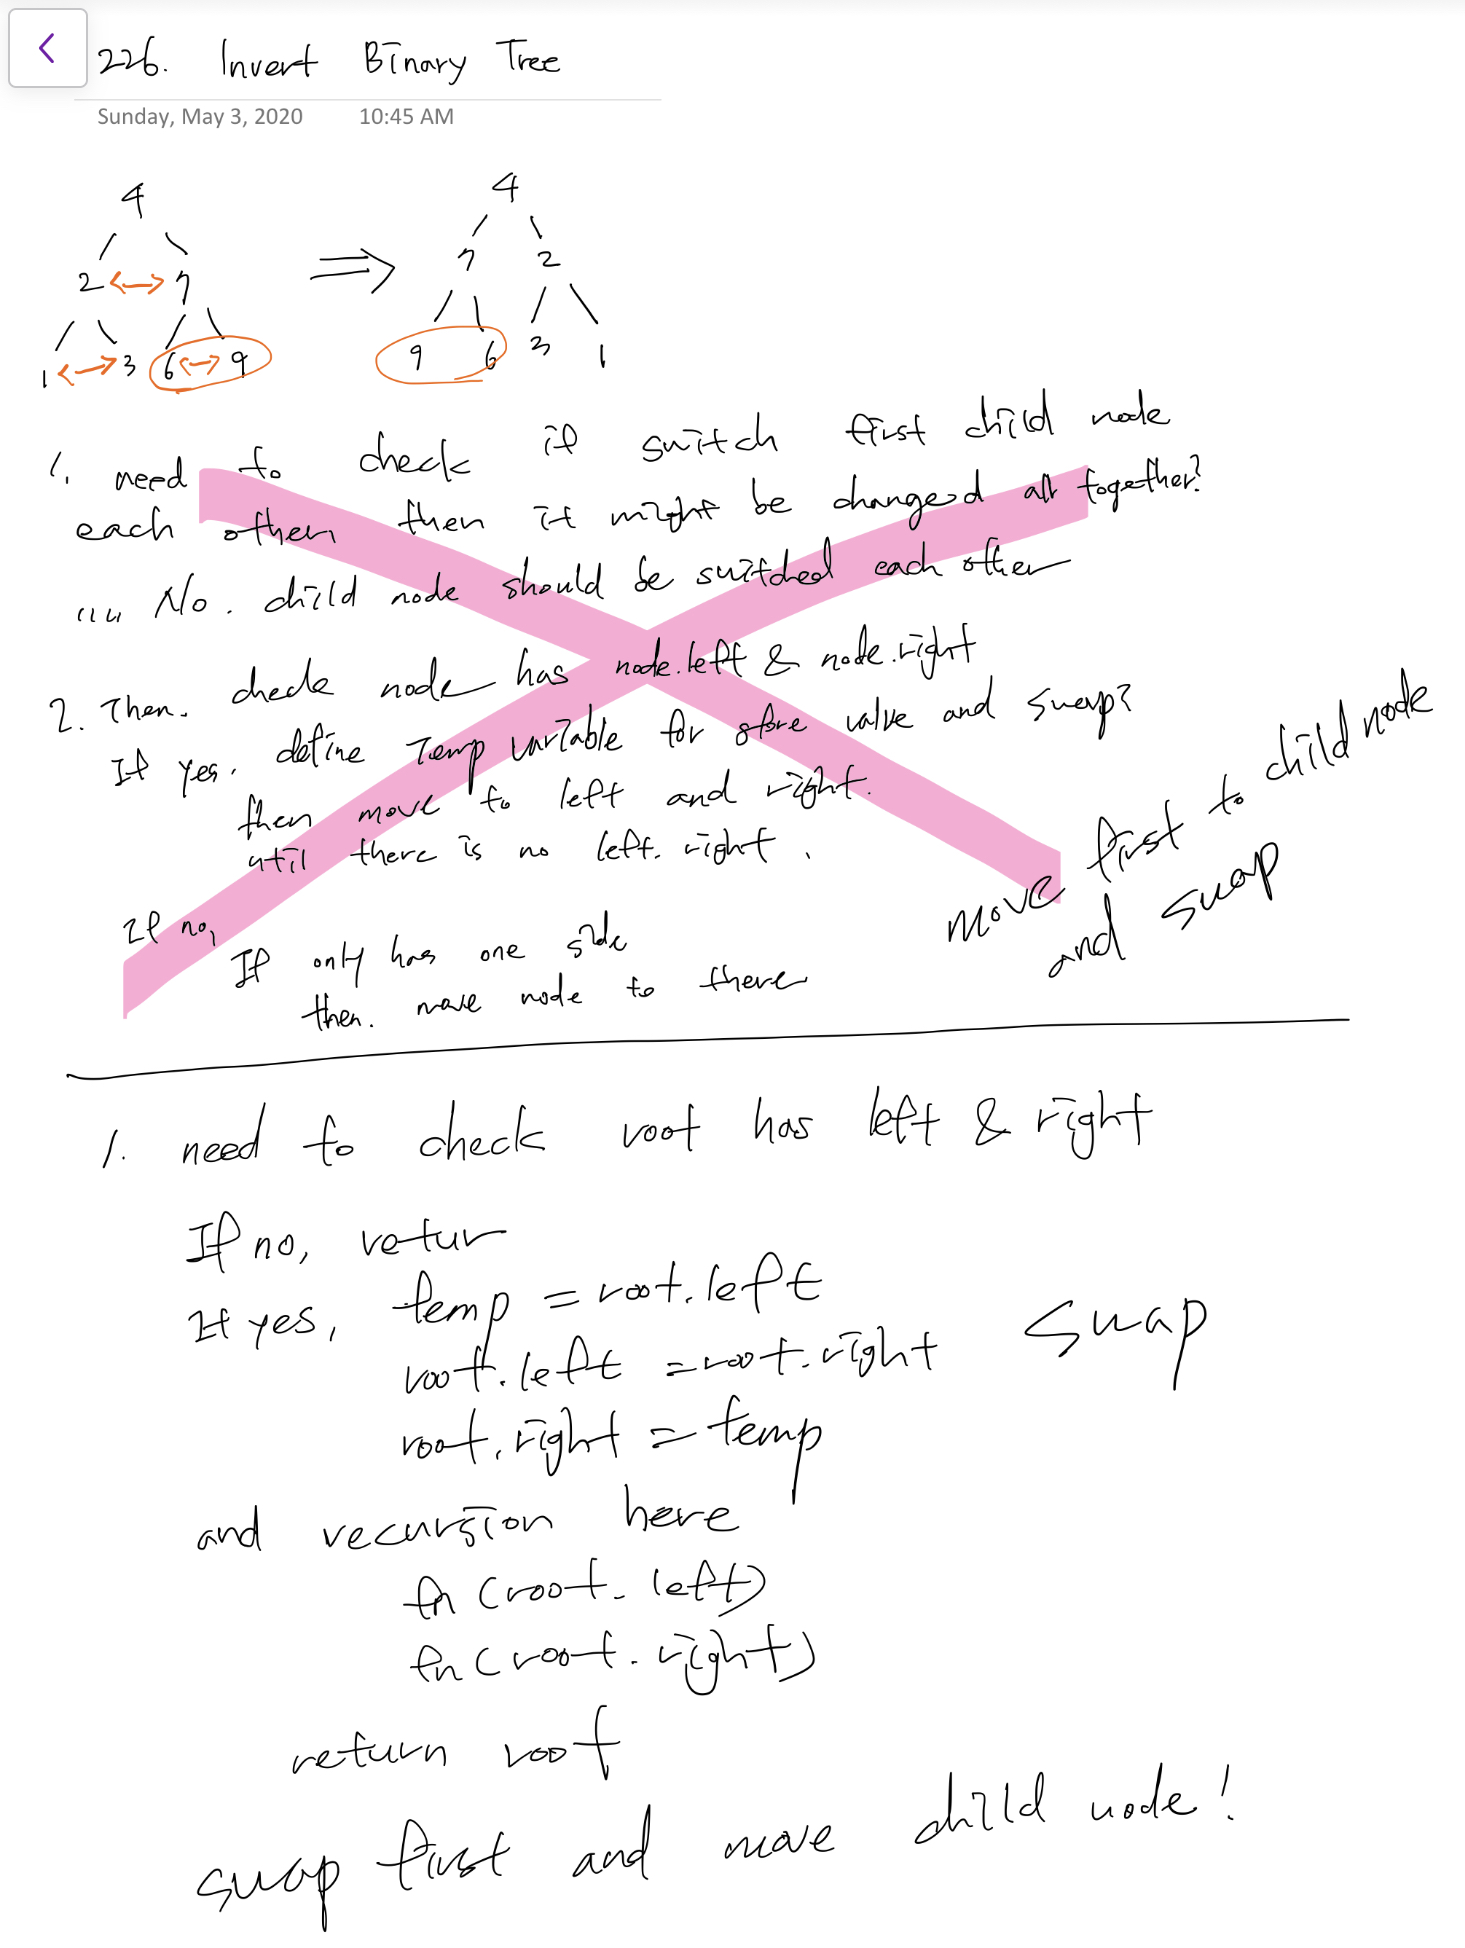 226. Invert Binary Tree
Sunday, May 3, 2020 10:45 AM
4 4
2 7 7 2
1 3 6 9 9 6 3 1
1. need to check if switch first child node
each other then it might be changed all together?
No. child node should be switched each other
2. Then. check node has node.left & node.right
If yes. define Temp variable for store value and swap?
then move to left and right.
until there is no left. right.
If no,
If only has one side
then. move node to there
move first to child node
and swap
1. need to check root has left & right
If no, retur
If yes, temp = root.left
root.left = root.right swap
root.right = temp
and recursion here
fn (root.left)
fn (root.right)
return root
swap first and move child node!